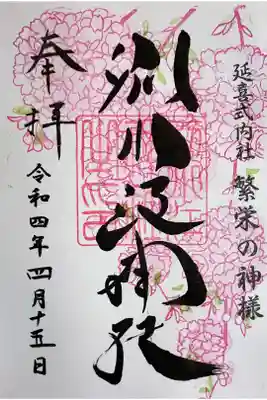 延喜式内社 繁栄の神様
別小江神社
奉拝
令和四年四月十五日